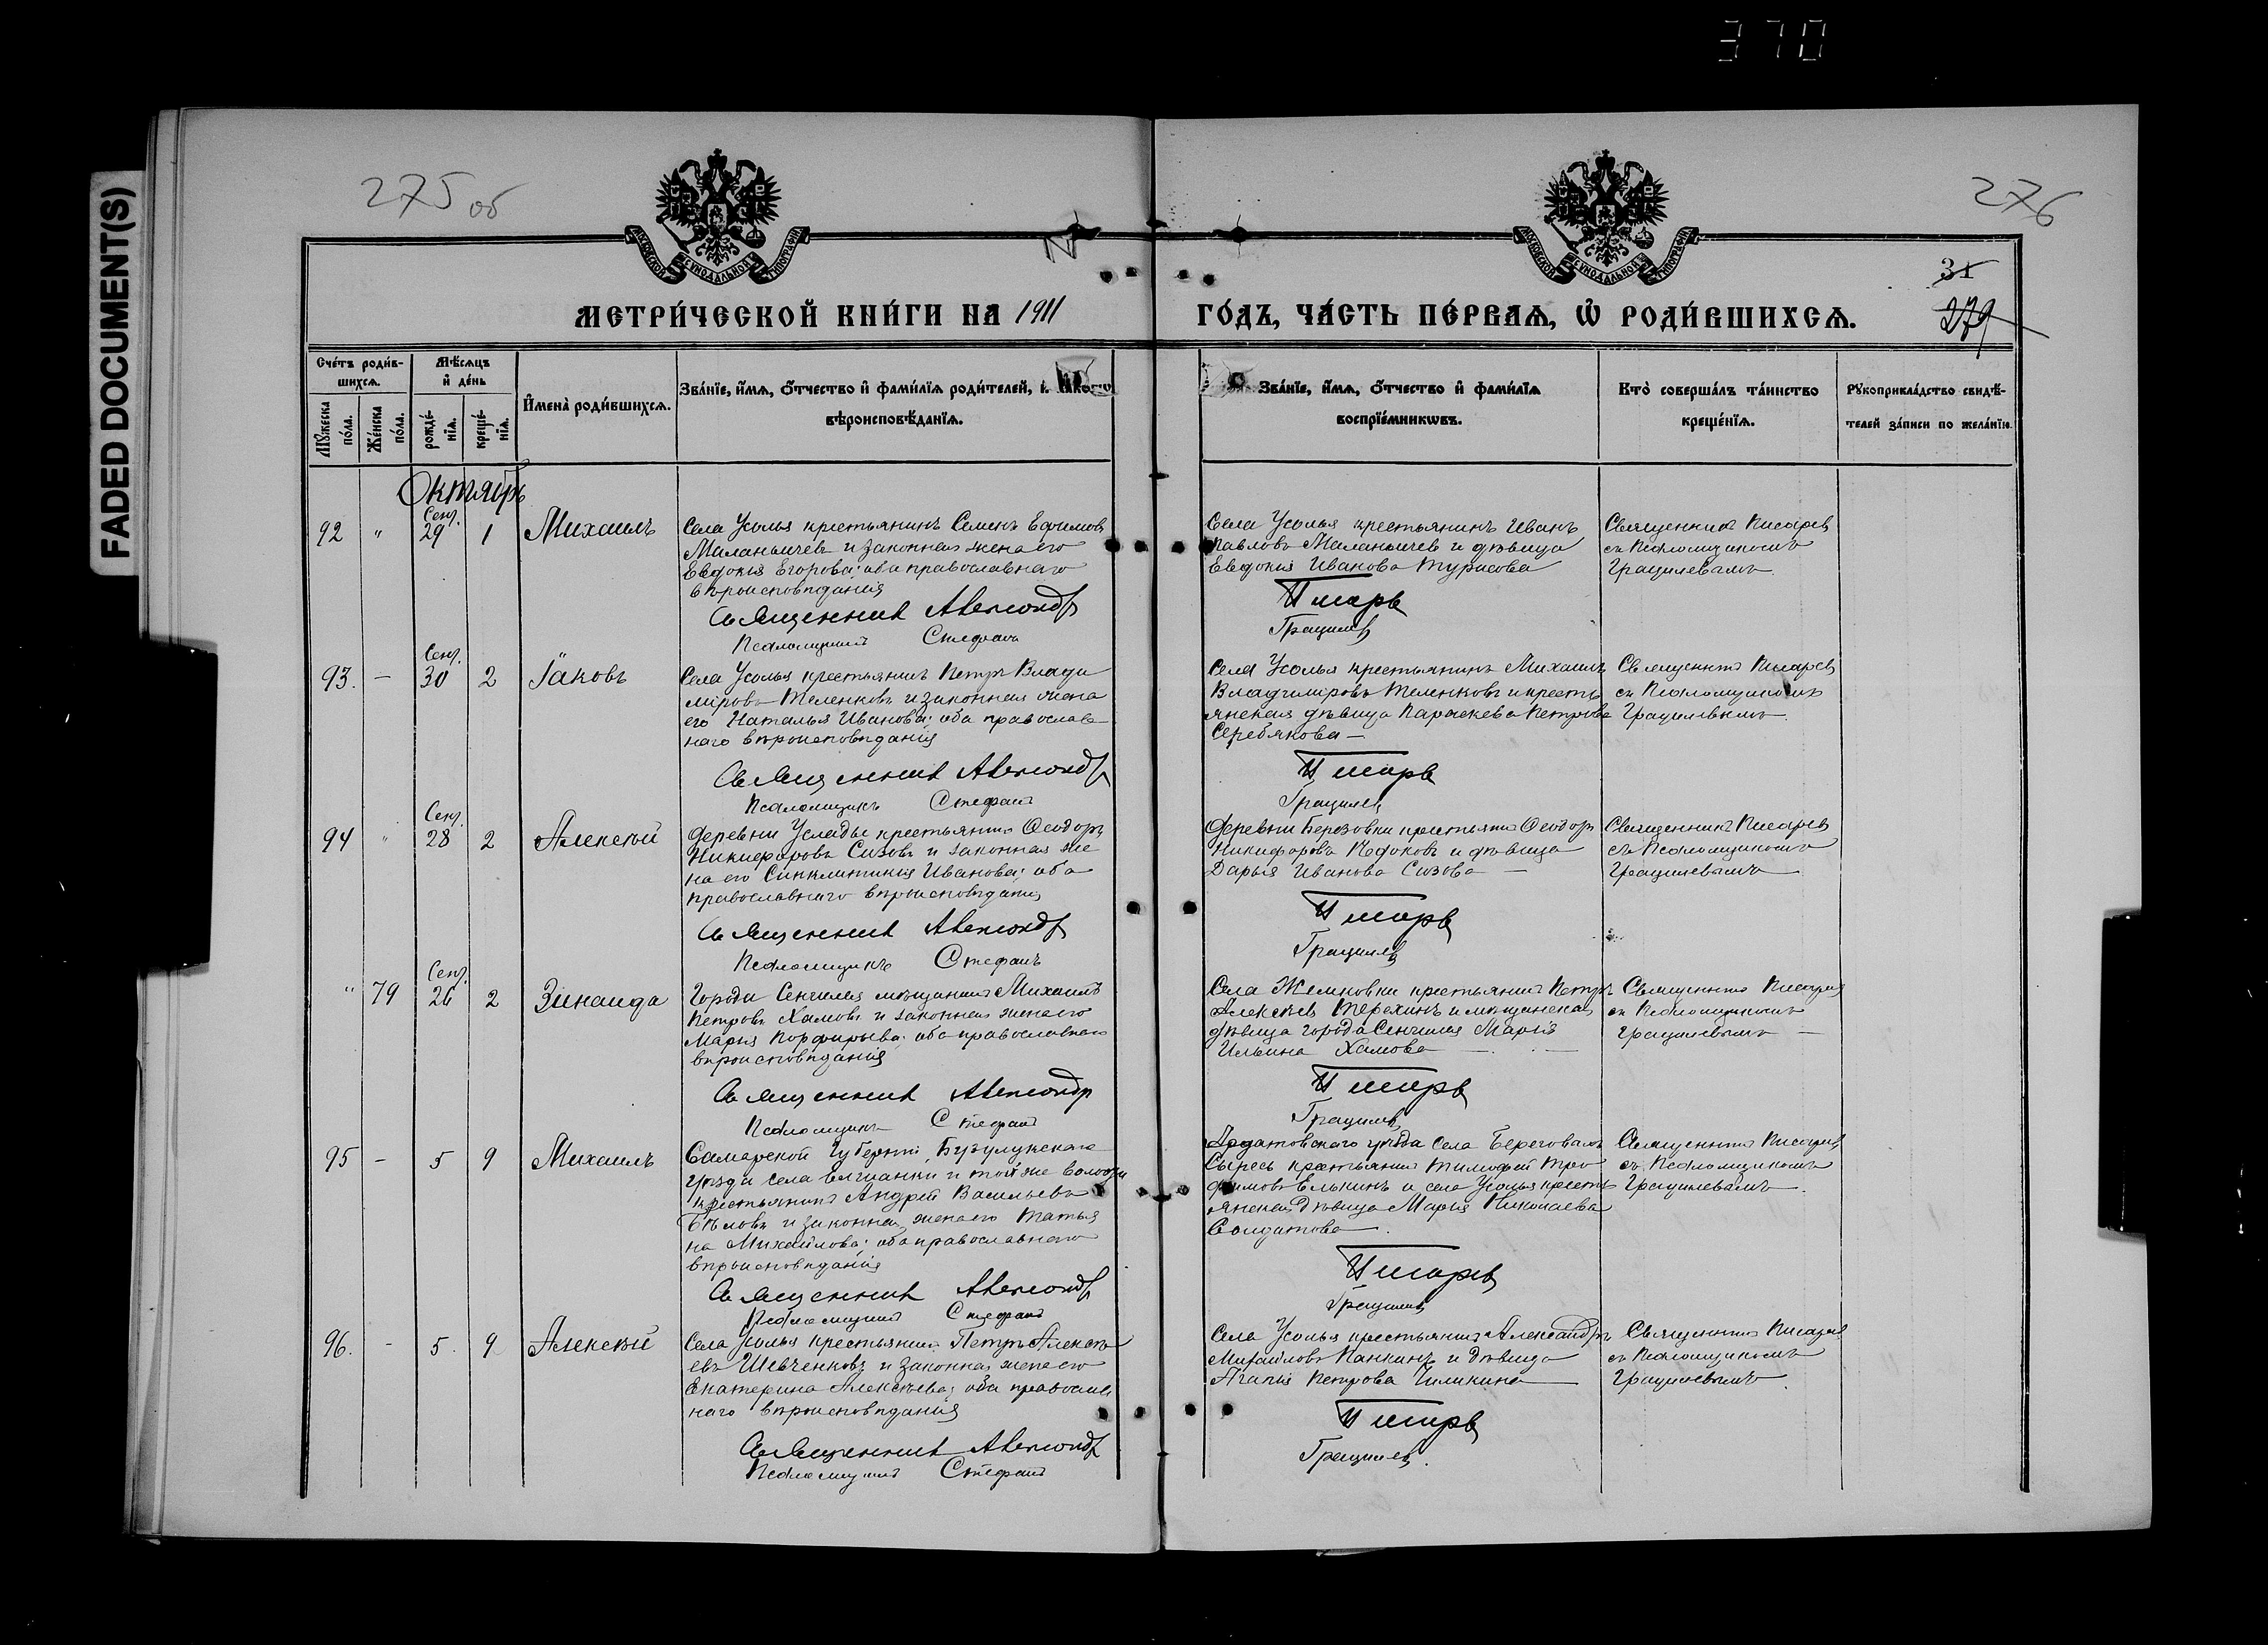 370
FADED DOCUMENT(S)
275 об
276
МОСКОВСКОЙ СѴНОДАЛЬНОЙ ТИПОГРАФІИ
МОСКОВСКОЙ СѴНОДАЛЬНОЙ ТИПОГРАФІИ
31
279
МЕТРИ́ЧЕСКОЙ КНИ́ГИ НА 1911
ГО́ДЪ, ЧА́СТЬ ПЕ́РВАѦ, Ѡ҆ РОДИ́ВШИХСѦ.
Сче́тъ роди́в-
шихсѧ.
Мѣ́сѧцъ
и҆ де́нь
Мꙋ́жеска
по́ла.
Же́нска
по́ла.
рожде́-
нїѧ.
креще́-
нїѧ.
И҆мена̀ роди́вшихсѧ.
Зва́нїе, и҆́мѧ, ѻ҆́тчество и҆ фами́лїѧ роди́телей, и҆
вѣроисповѣ́данїѧ.
Зва́нїе, и҆́мѧ, ѻ҆́тчество и҆ фами́лїѧ
воспрїе́мникѡвъ.
Кто̀ соверша́лъ та́инство
креще́нїѧ.
Рꙋкоприкла́дство свидѣ́-
телей за́писи по жела́нїю.
Октябрь
92 " Сент. 29 1 Михаилъ
Села Усолья крестьянинъ Семенъ Ефимовъ
Маланьичевъ и законная жена его
Евдокія Егорова; оба православнаго
вѣроисповѣданія
Священникъ Александръ
Псаломщикъ Стефанъ
Села Усолья крестьянинъ Иванъ
Павловъ Маланьичевъ и дѣвица
Евдокія Иванова Турисова
Писаревъ
Грацилевъ
Священникъ Писаревъ
съ Псаломщикомъ
Грацилевымъ.
93. — Сент. 30 2 Іаковъ
Села Усолья крестьянинъ Петръ Влади
міровъ Теленковъ и законная жена
его Наталья Иванова; оба православ
наго вѣроисповѣданія
Священникъ Александръ
Псаломщикъ Стефанъ
Села Усолья крестьянинъ Михаилъ
Владиміровъ Теленковъ и кресть
янская дѣвица Параскева Петрова
Серебякова —
Писаревъ
Грацилевъ
Священникъ Писаревъ
съ Псаломщикомъ
Грацилевымъ.
94 " Сент. 28 2 Алексѣй
Деревни Услады крестьянинъ Ѳеодоръ
Никифоровъ Сизовъ и законная же
на его Синклитикія Иванова; оба
православнаго вѣроисповѣданія
Священникъ Александръ
Псаломщикъ Стефанъ
Деревни Березовки крестьянинъ Ѳеодоръ
Никифоровъ и дѣвица
Дарья Иванова Сизова —
Писаревъ
Грацилевъ
Священникъ Писаревъ
съ Псаломщикомъ
Грацилевымъ
" 79 Сент. 26 2 Зинаида
Города Сенгилея мѣщанинъ Михаилъ
Петровъ Хамовъ и законная жена его
Марья Порфирьева; оба православнаго
вѣроисповѣданія
Священникъ Александръ
Псаломщикъ Стефанъ
Села Жемковки крестьянинъ Петръ
Алексѣевъ Терехинъ и мѣщанская
дѣвица города Сенгилея Марія
Ильина Хамова —
Писаревъ
Грацилевъ
Священникъ Писаревъ
съ Псаломщикомъ
Грацилевымъ —
95 — 5 9 Михаилъ
Самарской Губерніи, Бузулукскаго
уѣзда села и той же волости
крестьянинъ Андрей Васильевъ
Бѣловъ и законная жена его Татья
на Михайлова; оба православнаго
вѣроисповѣданія
Священникъ Александръ
Псаломщикъ Стефанъ
Ардатовскаго уѣзда села Береговыхъ
Сыресь крестьянинъ Тимофей Тро
фимовъ Елькинъ и села Усолья кресть
янская дѣвица Марія Николаева
Солдатова —.
Писаревъ
Грацилевъ
Священникъ Писаревъ
съ Псаломщикомъ
Грацилевымъ.
96. — 5. 9 Алексѣй
Села Усолья крестьянинъ Петръ Алексѣ
евъ Шевченковъ и законная жена его
Екатерина Алексѣева; оба православ
наго вѣроисповѣданія
Священникъ Александръ
Псаломщикъ Стефанъ
Села Усолья крестьянинъ Александръ
Михайловъ Панкинъ и дѣвица
Агапія Петрова Чиликина —
Писаревъ
Грацилевъ.
Священникъ Писаревъ
съ Псаломщикомъ
Грацилевымъ.